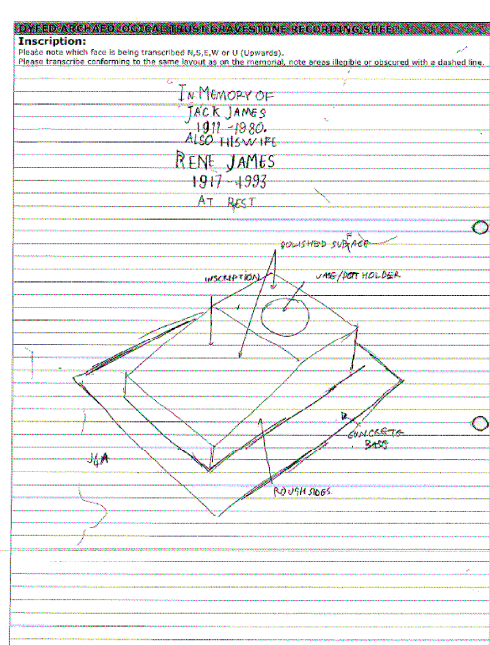 DYFED ARCHAEOLOGICAL TRUST GRAVESTONE RECORDING SHEET
Inscription:
Please note which face is being transcribed N,S,E,W or U (Upwards).
Please transcribe conforming to the same layout as on the memorial, note areas illegible or obscured with a dashed line.
IN MEMORY OF
JACK JAMES
1911-1980.
ALSO HIS WIFE
RENE JAMES
1917-1993
AT REST
POLISHED SURFACE
INSCRIPTION
VASE/POT HOLDER
CONCRETE
BASE
ROUGH SIDES